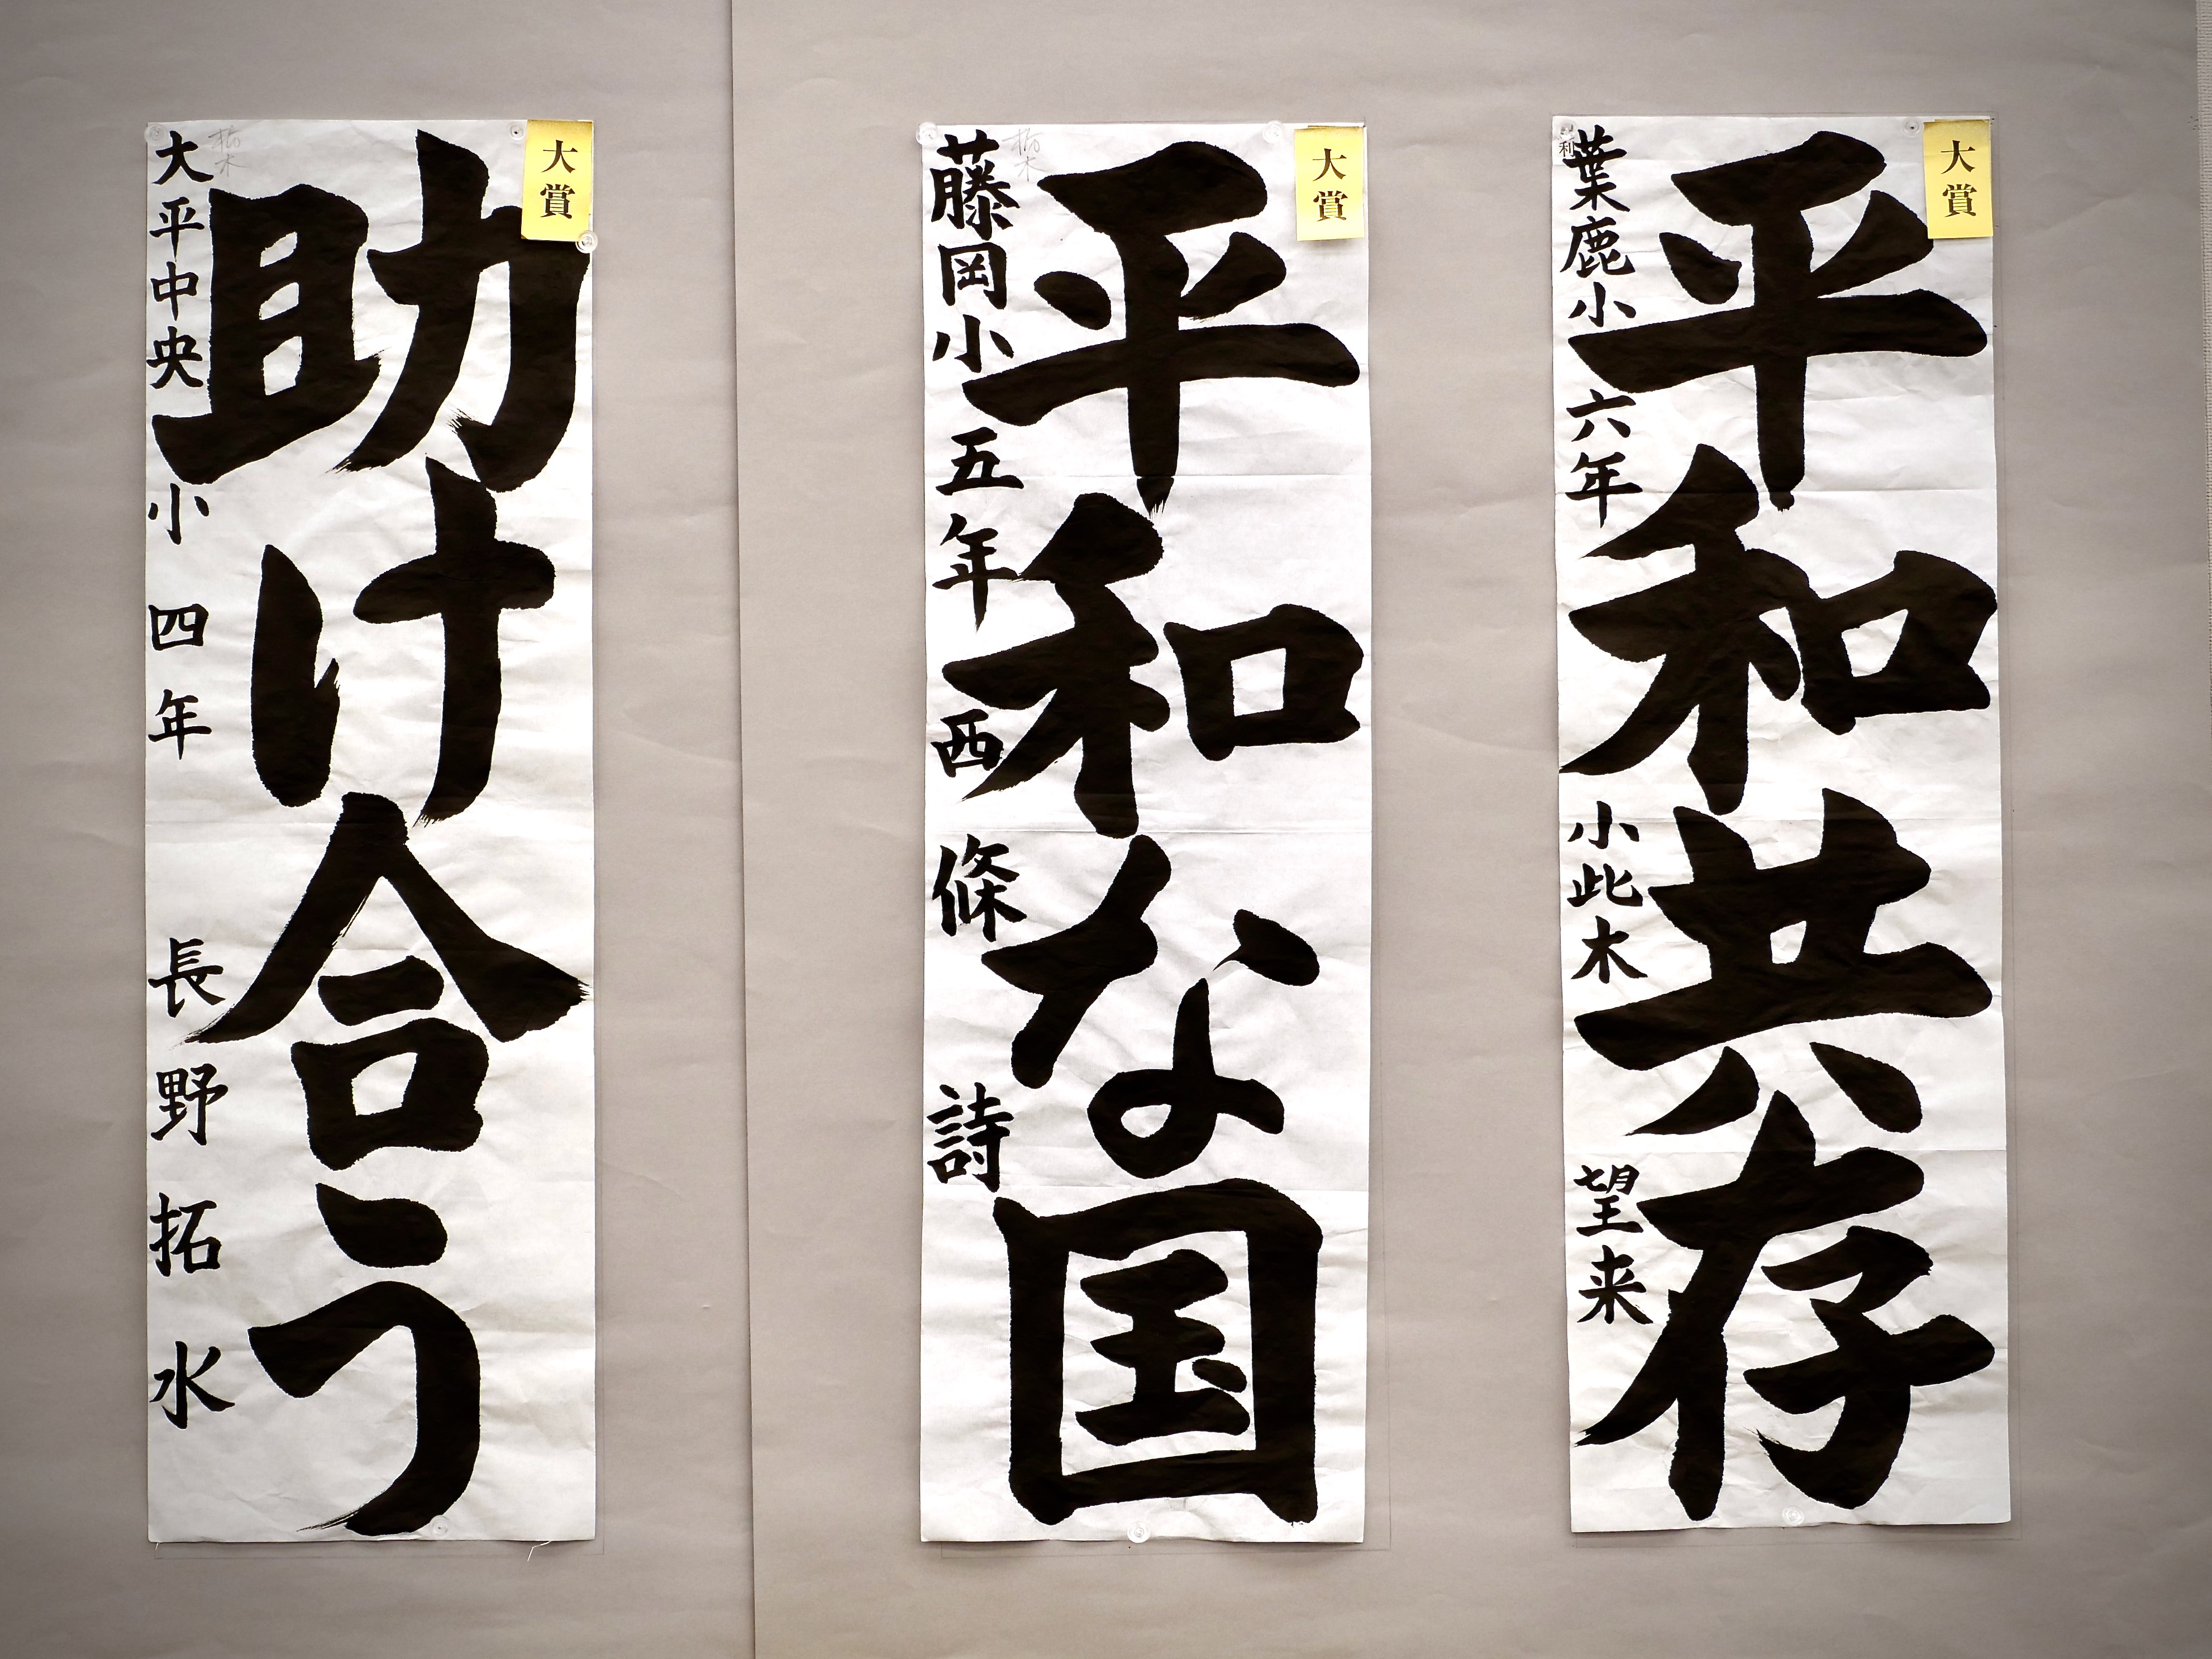 大賞
平和共存
葉鹿小 六年 小此木 望来
利
大賞
平和な国
藤岡小 五年 西條 詩
栃木
大賞
助け合う
大平中央小 四年 長野拓水
栃木